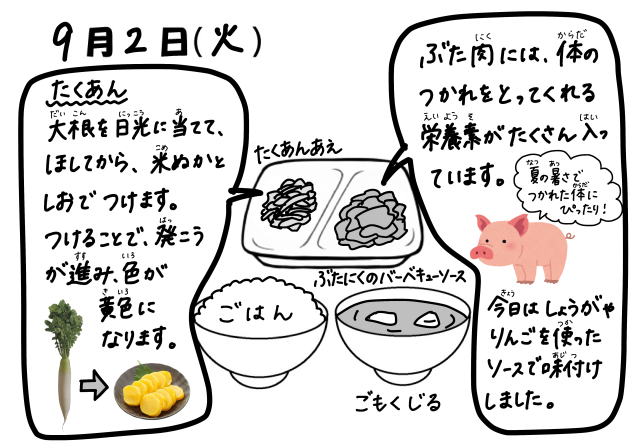 9月2日(火)
たくあん
大根を日光に当てて、
ほしてから、米ぬかと
しおでつけます。
つけることで、発こう
が進み、色が
黄色に
なります。
たくあんあえ
ぶたにくのバーベキューソース
ごはん
ごもくじる
ぶた肉には、体の
つかれをとってくれる
栄養素がたくさん入っ
ています。
夏の暑さで
つかれた体に
ぴったり!
今日はしょうがや
りんごを使った
ソースで味付け
しました。